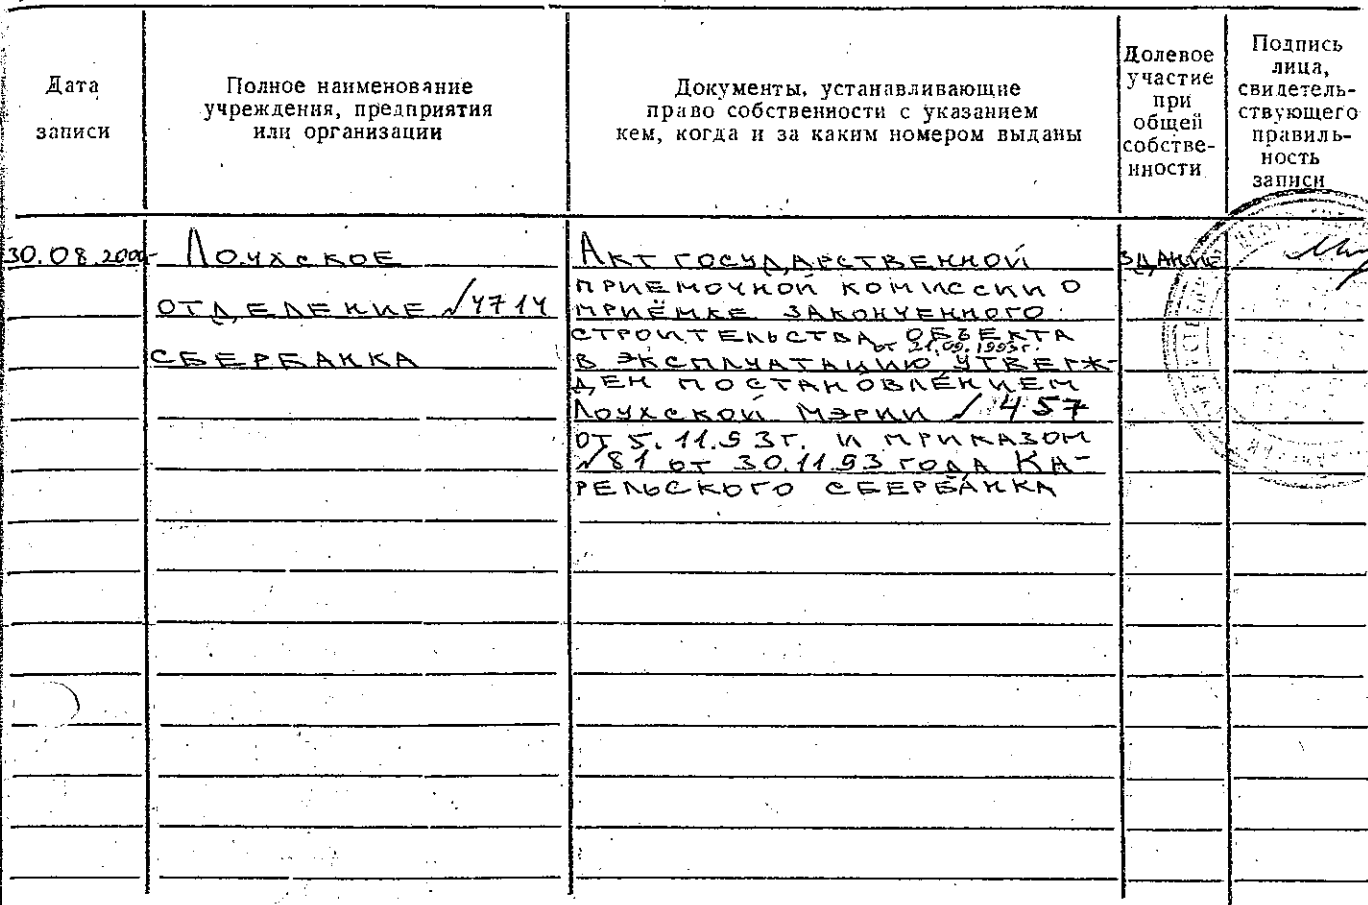 Дата
записи
Полное наименование
учреждения, предприятия
или организации
Документы, устанавливающие
право собственности с указанием
кем, когда и за каким номером выданы
Долевое
участие
при
общей
собстве-
нности
Подпись
лица,
свидетель-
ствующего
правиль-
ность
записи
30.08.2000
Лоухское
отделение №4714
Сбербанка
Акт государственной
приемочной комиссии о
приёмке законченного
строительства объекта
от 21.09.1993г.
в эксплуатацию утверж-
ден постановлением
Лоухской мэрии № 457
от 5.11.93г. и приказом
№81 от 30.11.93 года Ка-
рельского Сбербанка
здание